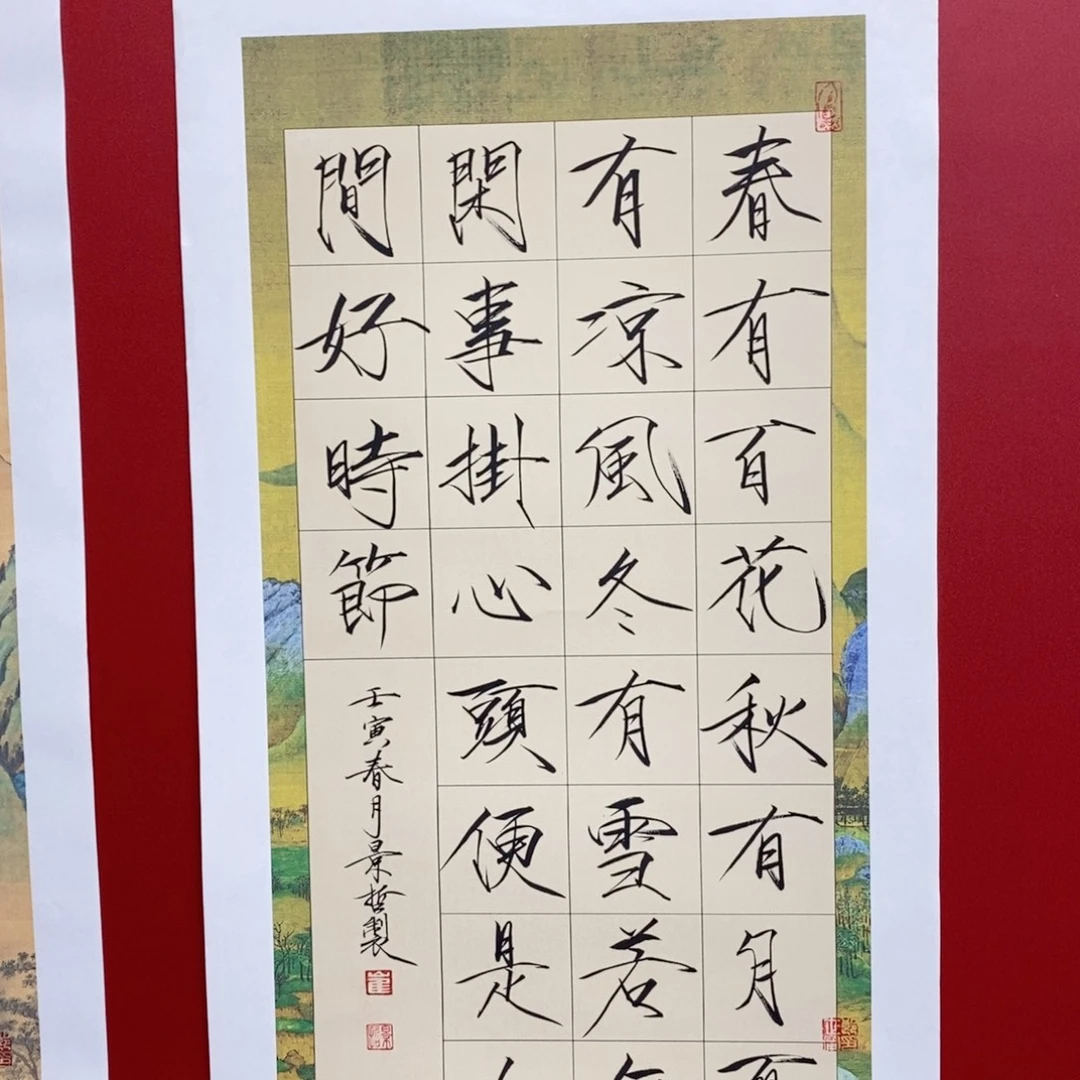 春有百花秋有月夏
有凉風冬有雪若
閑事掛心頭便是
間好時節
壬寅春月景哲製
崔